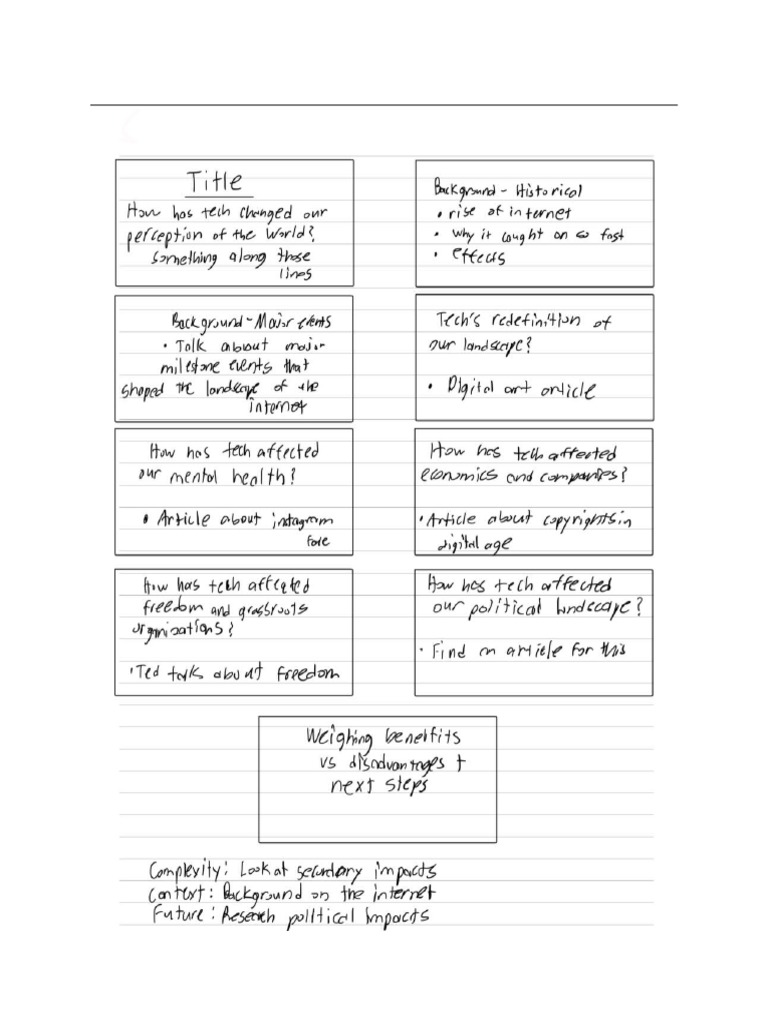 Title
How has tech changed our
perception of the World?
something along those
lines
Background - Historical
• rise of internet
• why it caught on so fast
• effects
Background - Major events
• Talk about major
milestone events that
shaped the landscape of the
internet
Tech's redefinition of
our landscape?
• Digital art article
How has tech affected
our mental health?
• Article about instagram
How has tech affected
economics and companies?
• Article about copyrights in
digital age
How has tech affected
freedom and grassroots
organizations?
• Ted talk about freedom
How has tech affected
our political landscape?
• Find an article for this
Weighing benefits
vs disadvantages +
next steps
Complexity: Look at secondary impacts
Context: Background on the internet
Future: Research political impacts